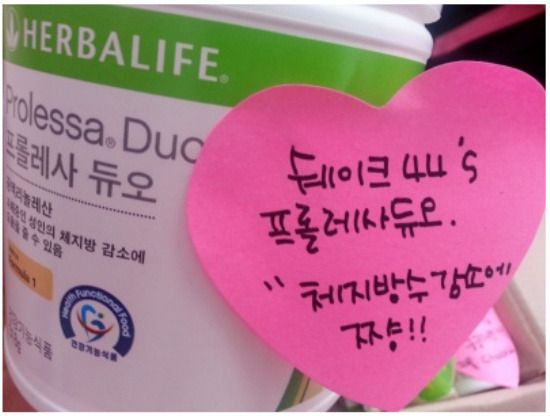 HERBALIFE®
Prolessa® Duo
프롤레사 듀오
공액리놀레산
과체중인 성인의 체지방 감소에
도움을 줄 수 있음
Formula 1
Health Functional Food
건강기능식품
건강기능식품
쉐이크 44's
프롤레사듀오.
" 체지방수 감소에
쨩!!